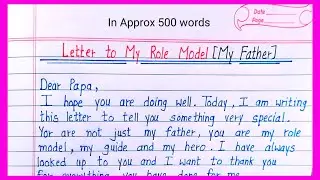 In Approx 500 words
Date
Page
Letter to My Role Model [My Father]
Dear Papa,
I hope you are doing well. Today, I am writing
this letter to tell you something very special.
You are not just my father, you are my role
model, my guide and my hero. I have always
looked up to you and I want to thank you
for everything you have done for me.